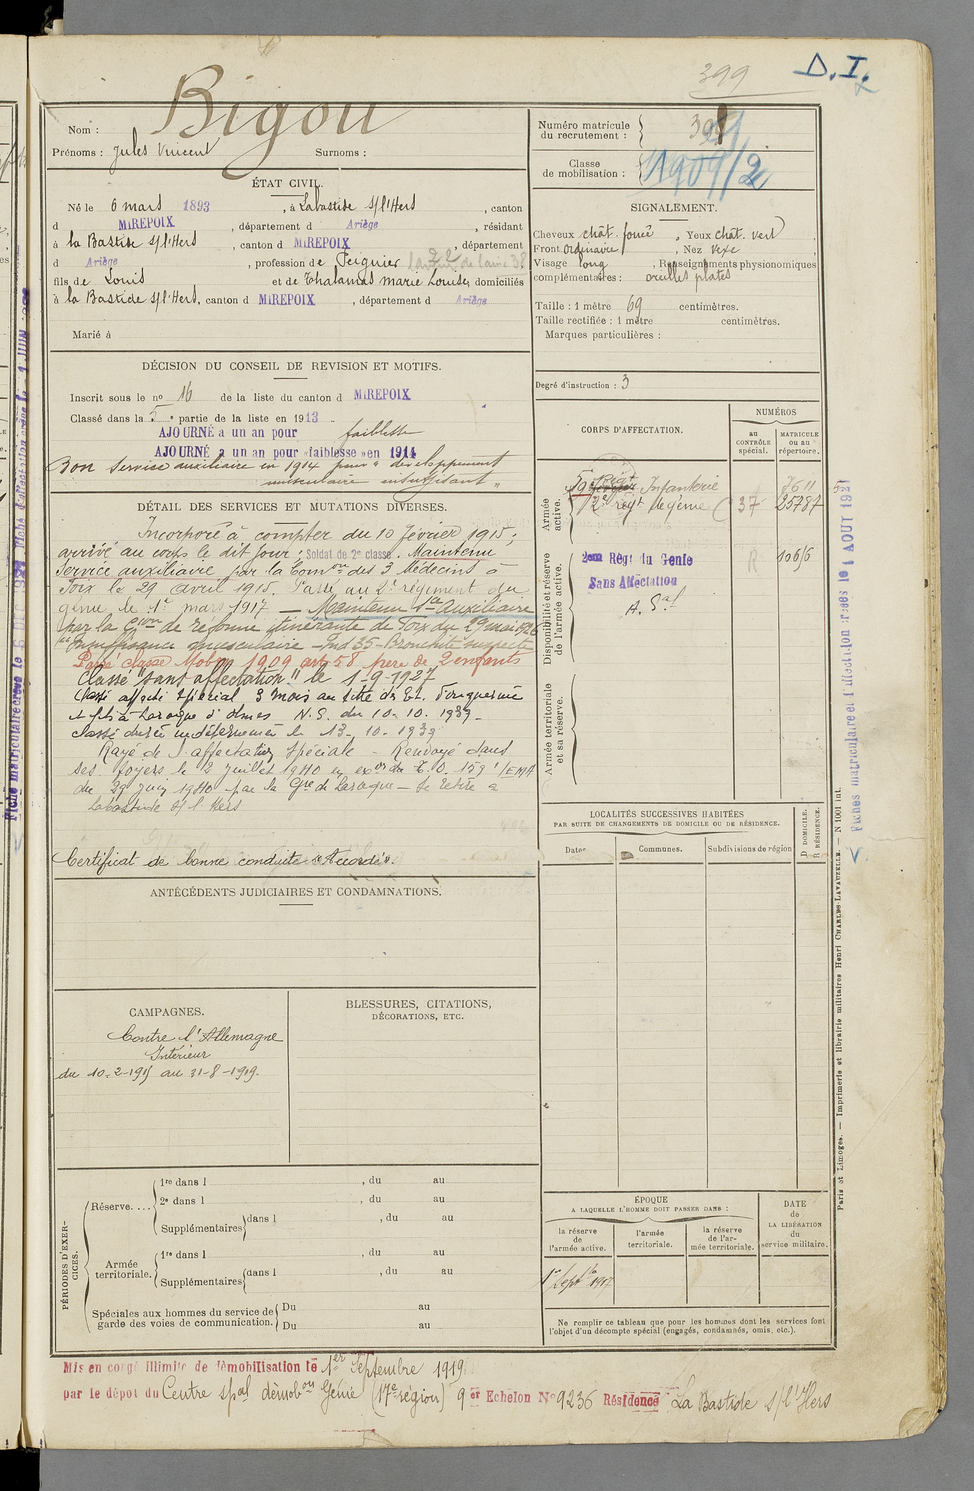 399
D. I.
Bigou
Nom :
Prénoms : Jules Vincent Surnoms :
Numéro matricule
du recrutement :
Classe
de mobilisation : 1909/2
ÉTAT CIVIL.
Né le 6 mars 1893, à Labastide s/l'Hers, canton
d MIREPOIX, département d Ariège, résidant
à la Bastide s/l'Hers, canton d MIREPOIX, département
d Ariège, profession de Peignier
fils de Louis et de Thalamas Marie Louise, domiciliés
à la Bastide s/l'Hers, canton d MIREPOIX, département d Ariège
Marié à
SIGNALEMENT.
Cheveux chât. foncé, Yeux chât. vert
Front ordinaire, Nez vexe
Visage long, Renseignements physionomiques
complémentaires : oreilles plates
Taille : 1 mètre 69 centimètres.
Taille rectifiée : 1 mètre centimètres.
Marques particulières :
Degré d'instruction : 3
DÉCISION DU CONSEIL DE REVISION ET MOTIFS.
Inscrit sous le no 16 de la liste du canton d MIREPOIX
Classé dans la 5e partie de la liste en 1913
AJOURNÉ à un an pour faiblesse
AJOURNÉ à un an pour «faiblesse» en 1914
Bon service auxiliaire en 1914 pour « développement
musculaire insuffisant »
DÉTAIL DES SERVICES ET MUTATIONS DIVERSES.
Incorporé à compter du 10 février 1915;
arrivé au corps le dit jour; Soldat de 2e classe. Maintenu
Service auxiliaire par la Comon des 3 Médecins à
Foix le 29 avril 1915. Passé au 2e régiment du
génie le 1er mars 1917 — Maintenu Sce Auxiliaire
par la Cion de réforme itinérante de Foix du 29 mai 1926
insuffisance musculaire — Bronchite suspecte
Passé classe Mobon 1909 art 58 père de 2 enfants
Classé "sans affectation" le 1-9-1927
Classé affecté spécial 3 mois au titre des Et. Fonquernie
et fils à Laroque d'Olmes N.S. du 10-10.1939-
Classé durée indéterminée le 13-10-1939
Rayé de l'affectation spéciale — Renvoyé dans
ses foyers le 2 juillet 1940
du 29 juin 1940 par la Gie de Laroque — Se retire à
Labastide s/l Hers
Certificat de bonne conduite «Accordé».
CORPS D'AFFECTATION.
NUMÉROS
au
CONTRÔLE
spécial.
MATRICULE
ou au
répertoire.
Armée
active.
59e Régt Infanterie 7611
2e régt du génie 37 25787
Disponibilité et réserve
de l'armée active.
2eme Régt du Génie R 1066
Sans Affectation
Armée territoriale
et sa réserve.
LOCALITÉS SUCCESSIVES HABITÉES
PAR SUITE DE CHANGEMENTS DE DOMICILE OU DE RÉSIDENCE.
Dates Communes. Subdivisions de région
D DOMICILE.
R RÉSIDENCE.
ANTÉCÉDENTS JUDICIAIRES ET CONDAMNATIONS.
CAMPAGNES.
Contre l'Allemagne
Intérieur
du 10-2-1915 au 31-8-1919.
BLESSURES, CITATIONS,
DÉCORATIONS, ETC.
PÉRIODES D'EXERCICES.
Réserve....
1re dans l , du au
2e dans l , du au
Supplémentaires dans l , du au
Armée
territoriale.
1re dans l , du au
Supplémentaires dans l , du au
Spéciales aux hommes du service de
garde des voies de communication.
Du au
Du au
ÉPOQUE
A LAQUELLE L'HOMME DOIT PASSER DANS :
la réserve
de
l'armée active.
l'armée
territoriale.
la réserve
de l'armée territoriale.
DATE
de
LA LIBÉRATION
du
service militaire.
Ne remplir ce tableau que pour les hommes dont les services font
l'objet d'un décompte spécial (engagés, condamnés, omis, etc.).
Mis en congé illimité de démobilisation le 1er Septembre 1919
par le dépôt du Centre spal démobon Génie (17e région) 9er Echelon No 9236 Résidence La Bastide s/l'Hers
Paris et Limoges. — Imprimerie et librairie militaires Henri CHARLES-LAVAUZELLE. — N 1001 int.